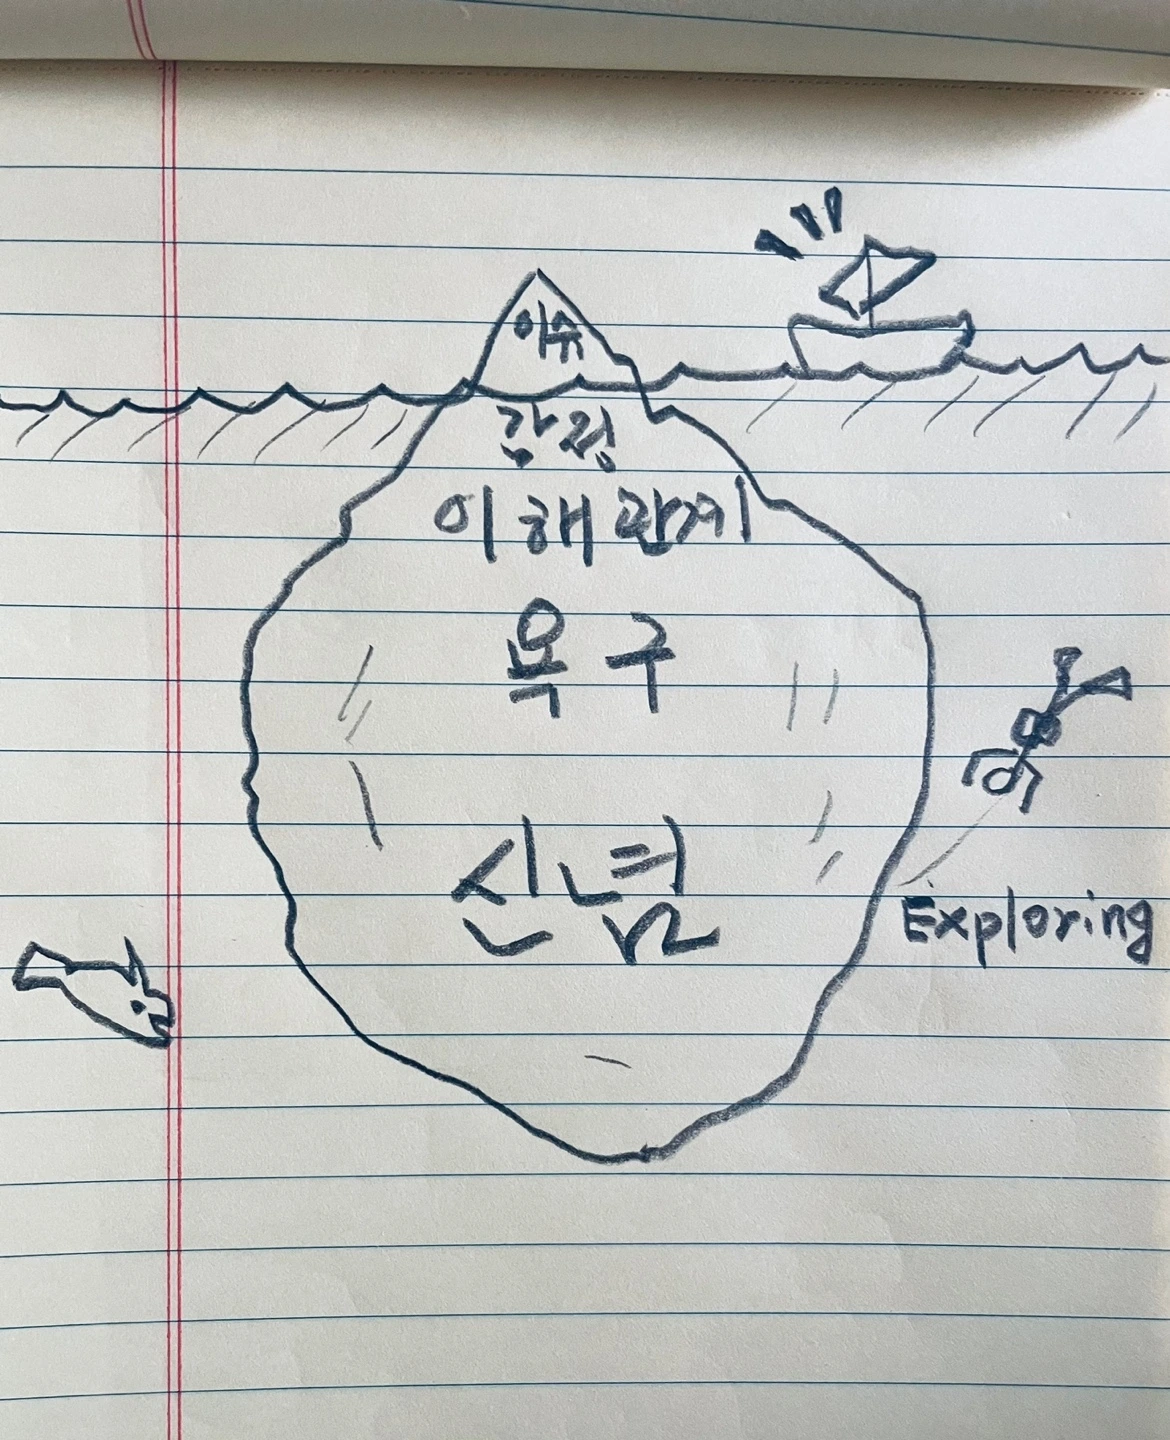 이슈
감정
이해관계
욕구
신념
Exploring